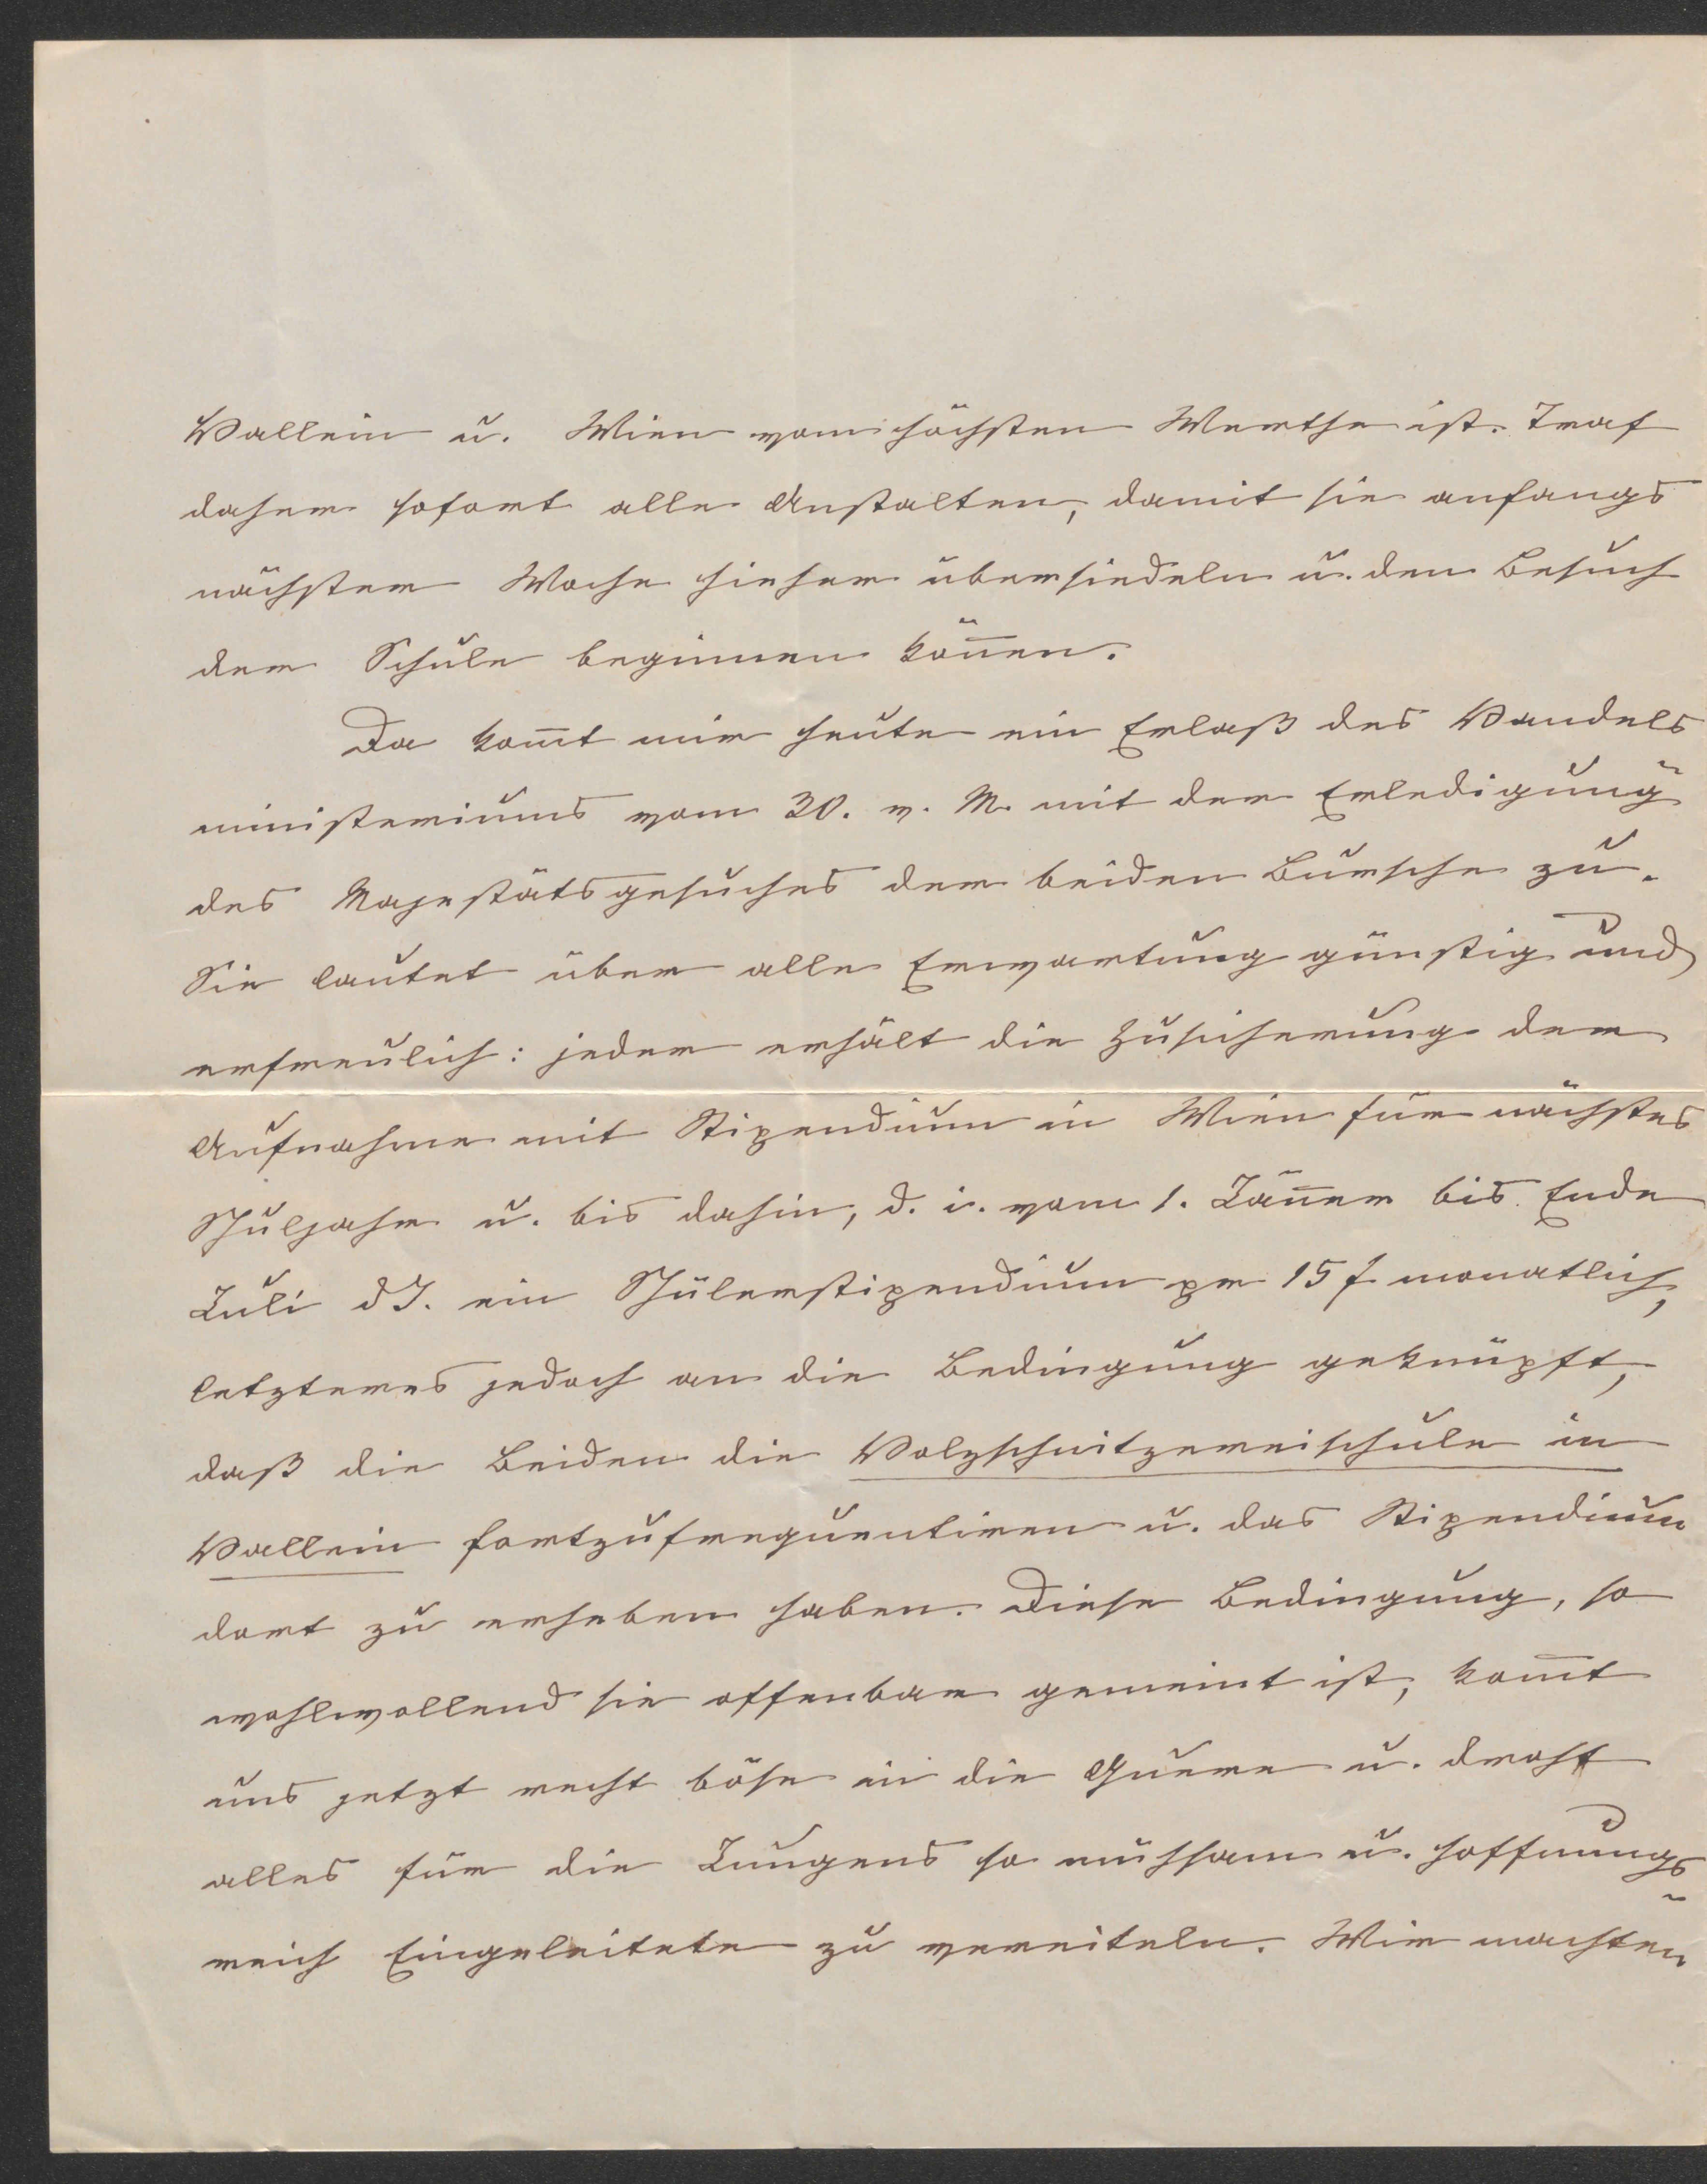 Hallein u. Wien vom höchsten Werthe ist. Traf
daher sofort alle Anstalten, damit sie anfangs
nächster Woche hieher übersiedeln u. den Besuch
der Schule beginnen kön̄en.
Da kom̄t mir heute ein Erlaß des Handels
ministeriums vom 30. v. M. mit der Erledigung
des Majestätsgesuches der beiden Bursche zu.
Sie lautet über alle Erwartung günstig und
erfreulich: jeder erhält die Zusicherung der
Aufnahme mit Stipendium in Wien für nächstes
Schuljahr u. bis dahin, d. i. vom 1. Jän̄er bis Ende
Juli dJ. ein Schülerstipendium pr 15 f monatlich,
letzteres jedoch an die Bedingung geknüpft,
daß die Beiden die Holzschnitzereischule in
Hallein fortzufrequentiren u. das Stipendium
dort zu erheben haben. Diese Bedingung, so
wohlwollend sie offenbar gemeint ist, kom̄t
uns jetzt recht böse in die Quere u. droht
alles für die Jungens so mühsam u. hoffnungs
reich Eingeleitete zu vereiteln. Wir machten